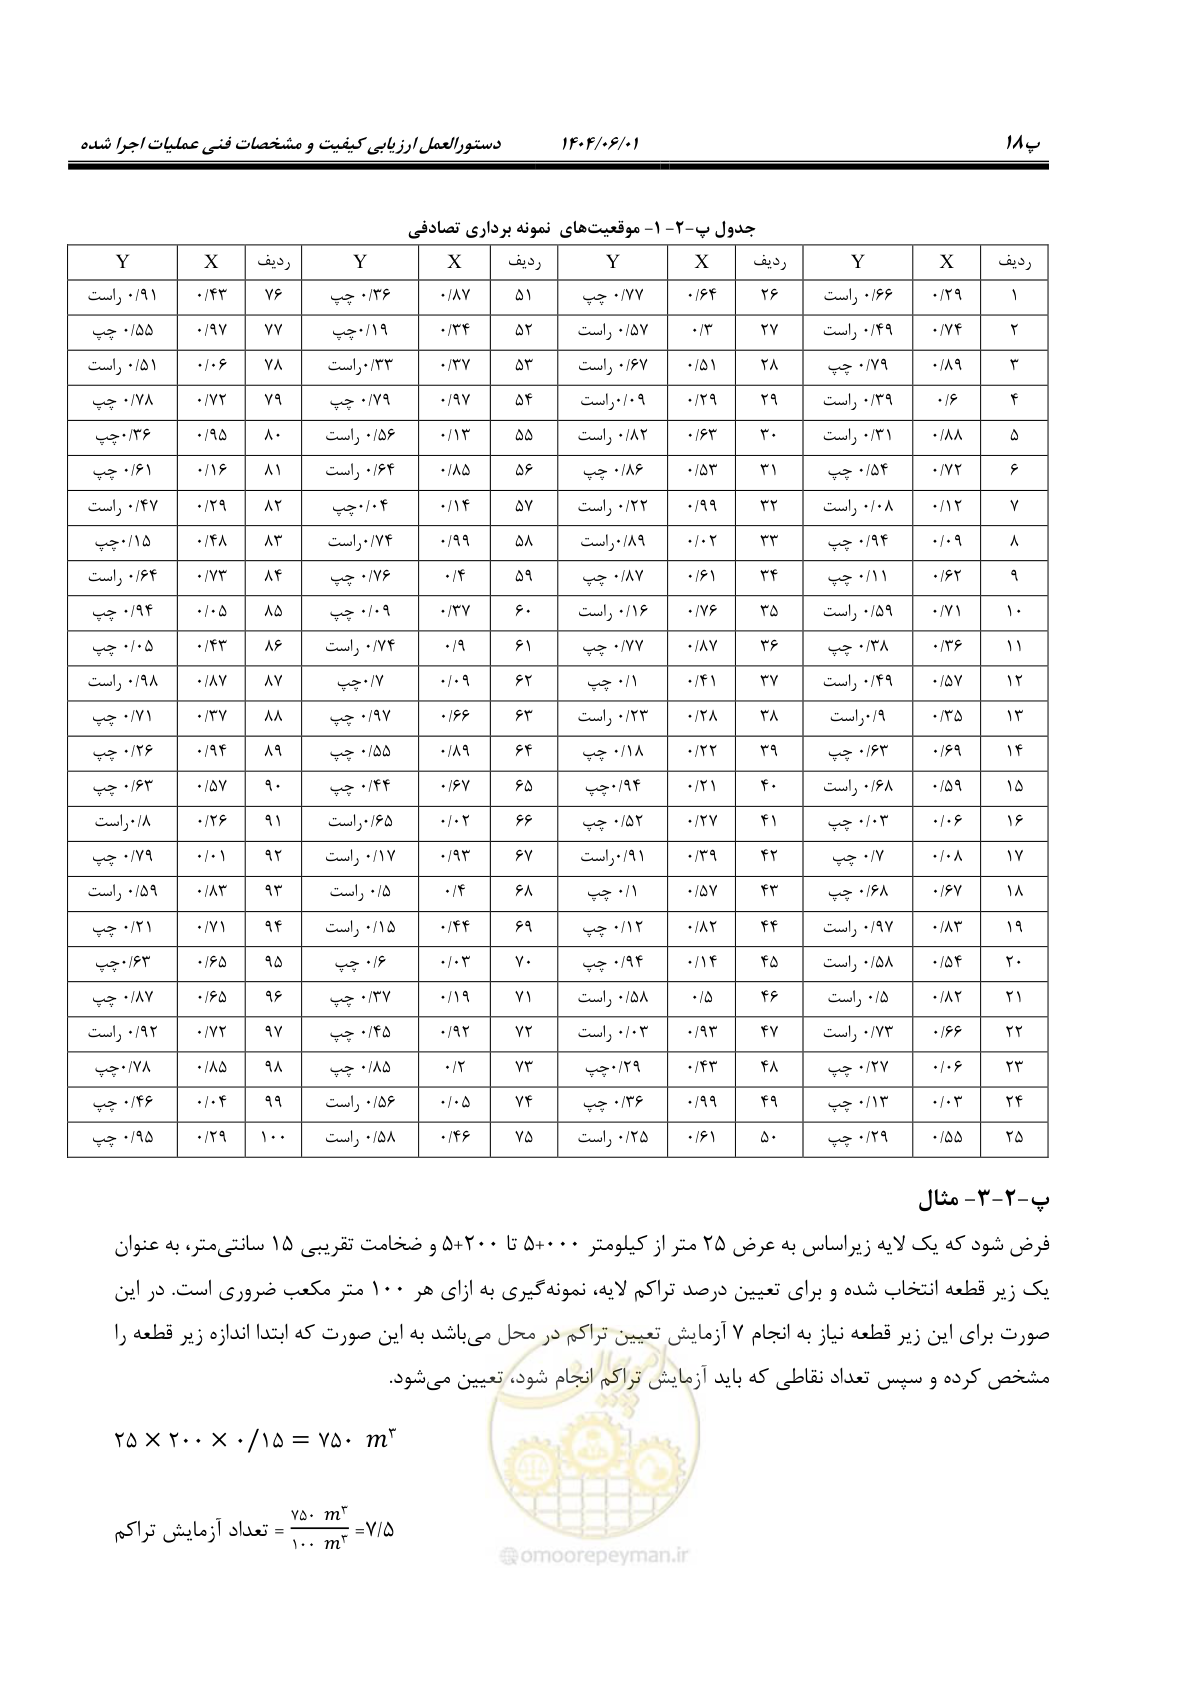 پ۱۸ ۱۴۰۴/۰۶/۰۱ دستورالعمل ارزیابی کیفیت و مشخصات فنی عملیات اجرا شده
جدول پ-۲-۱- موقعیت‌های نمونه برداری تصادفی
ردیف X Y ردیف X Y ردیف X Y ردیف X Y
۱ ۰/۲۹ ۰/۶۶ راست ۲۶ ۰/۶۴ ۰/۷۷ چپ ۵۱ ۰/۸۷ ۰/۳۶ چپ ۷۶ ۰/۴۳ ۰/۹۱ راست
۲ ۰/۷۴ ۰/۴۹ راست ۲۷ ۰/۳ ۰/۵۷ راست ۵۲ ۰/۳۴ ۰/۱۹چپ ۷۷ ۰/۹۷ ۰/۵۵ چپ
۳ ۰/۸۹ ۰/۷۹ چپ ۲۸ ۰/۵۱ ۰/۶۷ راست ۵۳ ۰/۳۷ ۰/۳۳راست ۷۸ ۰/۰۶ ۰/۵۱ راست
۴ ۰/۶ ۰/۳۹ راست ۲۹ ۰/۲۹ ۰/۰۹راست ۵۴ ۰/۹۷ ۰/۷۹ چپ ۷۹ ۰/۷۲ ۰/۷۸ چپ
۵ ۰/۸۸ ۰/۳۱ راست ۳۰ ۰/۶۳ ۰/۸۲ راست ۵۵ ۰/۱۳ ۰/۵۶ راست ۸۰ ۰/۹۵ ۰/۳۶چپ
۶ ۰/۷۲ ۰/۵۴ چپ ۳۱ ۰/۵۳ ۰/۸۶ چپ ۵۶ ۰/۸۵ ۰/۶۴ راست ۸۱ ۰/۱۶ ۰/۶۱ چپ
۷ ۰/۱۲ ۰/۰۸ راست ۳۲ ۰/۹۹ ۰/۲۲ راست ۵۷ ۰/۱۴ ۰/۰۴چپ ۸۲ ۰/۲۹ ۰/۴۷ راست
۸ ۰/۰۹ ۰/۹۴ چپ ۳۳ ۰/۰۲ ۰/۸۹راست ۵۸ ۰/۹۹ ۰/۷۴راست ۸۳ ۰/۴۸ ۰/۱۵چپ
۹ ۰/۶۲ ۰/۱۱ چپ ۳۴ ۰/۶۱ ۰/۸۷ چپ ۵۹ ۰/۴ ۰/۷۶ چپ ۸۴ ۰/۷۳ ۰/۶۴ راست
۱۰ ۰/۷۱ ۰/۵۹ راست ۳۵ ۰/۷۶ ۰/۱۶ راست ۶۰ ۰/۳۷ ۰/۰۹ چپ ۸۵ ۰/۰۵ ۰/۹۴ چپ
۱۱ ۰/۳۶ ۰/۳۸ چپ ۳۶ ۰/۸۷ ۰/۷۷ چپ ۶۱ ۰/۹ ۰/۷۴ راست ۸۶ ۰/۴۳ ۰/۰۵ چپ
۱۲ ۰/۵۷ ۰/۴۹ راست ۳۷ ۰/۴۱ ۰/۱ چپ ۶۲ ۰/۰۹ ۰/۷چپ ۸۷ ۰/۸۷ ۰/۹۸ راست
۱۳ ۰/۳۵ ۰/۹راست ۳۸ ۰/۲۸ ۰/۲۳ راست ۶۳ ۰/۶۶ ۰/۹۷ چپ ۸۸ ۰/۳۷ ۰/۷۱ چپ
۱۴ ۰/۶۹ ۰/۶۳ چپ ۳۹ ۰/۲۲ ۰/۱۸ چپ ۶۴ ۰/۸۹ ۰/۵۵ چپ ۸۹ ۰/۹۴ ۰/۲۶ چپ
۱۵ ۰/۵۹ ۰/۶۸ راست ۴۰ ۰/۲۱ ۰/۹۴چپ ۶۵ ۰/۶۷ ۰/۴۴ چپ ۹۰ ۰/۵۷ ۰/۶۳ چپ
۱۶ ۰/۰۶ ۰/۰۳ چپ ۴۱ ۰/۲۷ ۰/۵۲ چپ ۶۶ ۰/۰۲ ۰/۶۵راست ۹۱ ۰/۲۶ ۰/۸راست
۱۷ ۰/۰۸ ۰/۷ چپ ۴۲ ۰/۳۹ ۰/۹۱راست ۶۷ ۰/۹۳ ۰/۱۷ راست ۹۲ ۰/۰۱ ۰/۷۹ چپ
۱۸ ۰/۶۷ ۰/۶۸ چپ ۴۳ ۰/۵۷ ۰/۱ چپ ۶۸ ۰/۴ ۰/۵ راست ۹۳ ۰/۸۳ ۰/۵۹ راست
۱۹ ۰/۸۳ ۰/۹۷ راست ۴۴ ۰/۸۲ ۰/۱۲ چپ ۶۹ ۰/۴۴ ۰/۱۵ راست ۹۴ ۰/۷۱ ۰/۲۱ چپ
۲۰ ۰/۵۴ ۰/۵۸ راست ۴۵ ۰/۱۴ ۰/۹۴ چپ ۷۰ ۰/۰۳ ۰/۶ چپ ۹۵ ۰/۶۵ ۰/۶۳چپ
۲۱ ۰/۸۲ ۰/۵ راست ۴۶ ۰/۵ ۰/۵۸ راست ۷۱ ۰/۱۹ ۰/۳۷ چپ ۹۶ ۰/۶۵ ۰/۸۷ چپ
۲۲ ۰/۶۶ ۰/۷۳ راست ۴۷ ۰/۹۳ ۰/۰۳ راست ۷۲ ۰/۹۲ ۰/۴۵ چپ ۹۷ ۰/۷۲ ۰/۹۲ راست
۲۳ ۰/۰۶ ۰/۲۷ چپ ۴۸ ۰/۴۳ ۰/۲۹چپ ۷۳ ۰/۲ ۰/۸۵ چپ ۹۸ ۰/۸۵ ۰/۷۸چپ
۲۴ ۰/۰۳ ۰/۱۳ چپ ۴۹ ۰/۹۹ ۰/۳۶ چپ ۷۴ ۰/۰۵ ۰/۵۶ راست ۹۹ ۰/۰۴ ۰/۴۶ چپ
۲۵ ۰/۵۵ ۰/۲۹ چپ ۵۰ ۰/۶۱ ۰/۲۵ راست ۷۵ ۰/۴۶ ۰/۵۸ راست ۱۰۰ ۰/۲۹ ۰/۹۵ چپ
پ-۲-۳- مثال
فرض شود که یک لایه زیراساس به عرض ۲۵ متر از کیلومتر ۰۰۰+۵ تا ۲۰۰+۵ و ضخامت تقریبی ۱۵ سانتی‌متر، به عنوان
یک زیر قطعه انتخاب شده و برای تعیین درصد تراکم لایه، نمونه‌گیری به ازای هر ۱۰۰ متر مکعب ضروری است. در این
صورت برای این زیر قطعه نیاز به انجام ۷ آزمایش تعیین تراکم در محل می‌باشد به این صورت که ابتدا اندازه زیر قطعه را
مشخص کرده و سپس تعداد نقاطی که باید آزمایش تراکم انجام شود، تعیین می‌شود.
۲۵ × ۲۰۰ × ۰/۱۵ = ۷۵۰ m³
تعداد آزمایش تراکم = ۷۵۰ m³ / ۱۰۰ m³ =۷/۵
امور پیمان
@omoorepeyman.ir